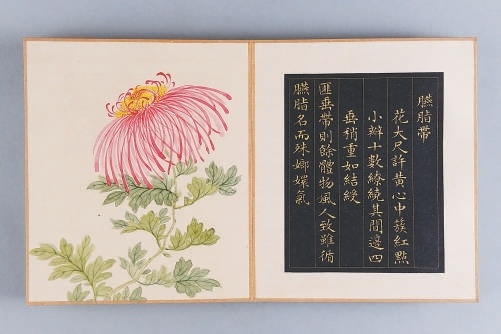 臙脂帶
花大尺許黄心中簇紅點
小辮十數繚繞其間邊四
垂稍重如結綬
匪垂帶則餘體物風人致雖循
臙脂名而殊嫏嬛氣